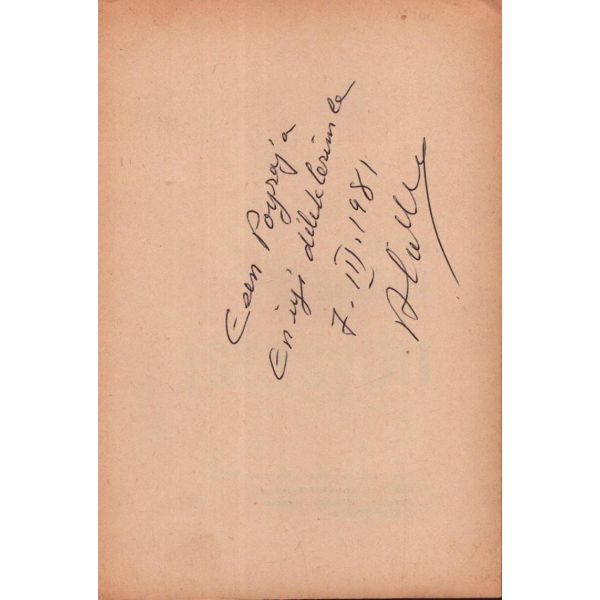 Esen Poyraz'a
En iyi dileklerimle
7.III.1981